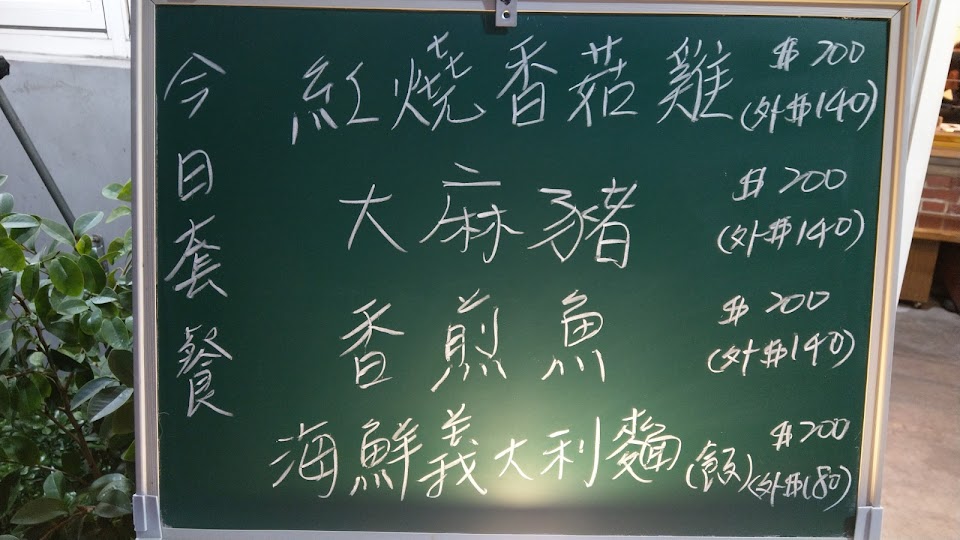 今日套餐
紅燒香菇雞 $200
(外$140)
大麻豬 $200
(外$140)
香煎魚 $200
(外$140)
海鮮義大利麵(飯) $200
(外$180)